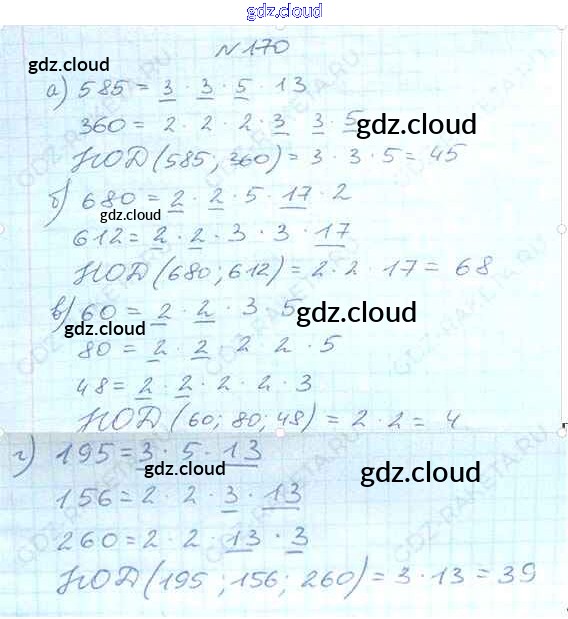 gdz.cloud
№170
gdz.cloud
а) 585 = 3 · 3 · 5 · 13
360 = 2 · 2 · 2 · 3 3 · 5
gdz.cloud
НОД (585; 360) = 3 · 3 · 5 = 45
б) 680 = 2 · 2 · 5 · 17 · 2
gdz.cloud
612 = 2 · 2 · 3 · 3 · 17
НОД (680; 612) = 2 · 2 · 17 = 68
в) 60 = 2 · 2 · 3 5
gdz.cloud
gdz.cloud
80 = 2 · 2 · 2 2 · 5
48 = 2 · 2 · 2 · 2 · 3
НОД (60; 80; 48) = 2 · 2 = 4
г) 195 = 3 · 5 · 13
gdz.cloud
gdz.cloud
156 = 2 · 2 · 3 · 13
260 = 2 · 2 · 13 · 3
gdz.cloud
gdz.cloud
НОД (195; 156; 260) = 3 · 13 = 39